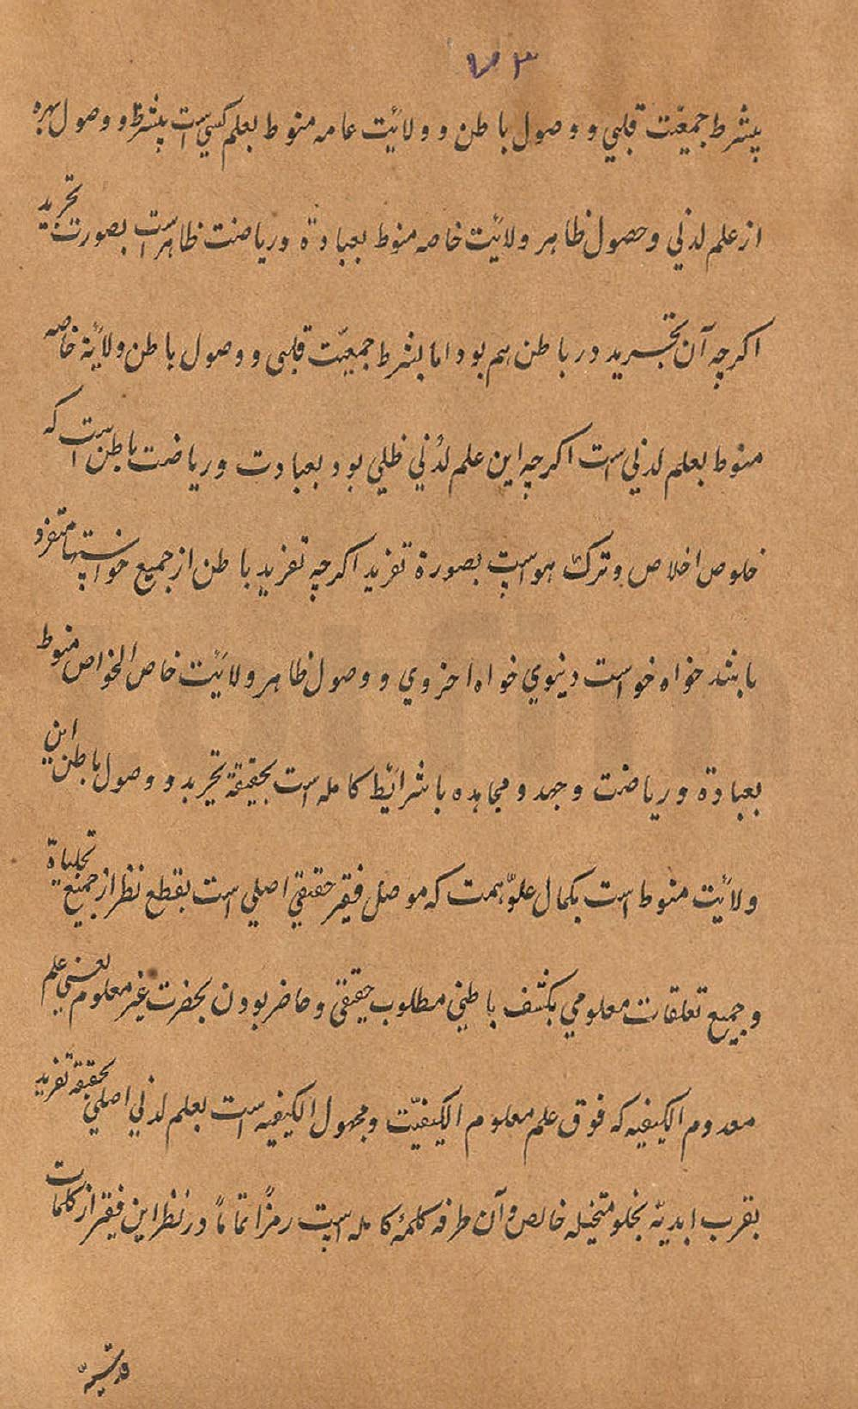 ۷۳
بشرط جمعیّت قلبي و وصول باطن و ولائیت عامه منوط بعلم کسبی است بشرط و وصول بهره
از علم لدني و حصول ظاهر ولائیت خاصه منوط بعبادة و ریاضت ظاهر است بصورت تجرید
اکرچه آن تجرید در باطن هم بود اما بشرط جمعیّت قلبی و وصول باطن ولایة خاصه
منوط بعلم لدنی است اکرچه این علم لدُني ظلي بود بعبادت و ریاضت باطن است که
خلوص اخلاص و ترک هواست بصورة تفرید اکرچه تفرید باطن از جمیع خواستها متفرد
باشد خواه خواست دینوي خواه اخروي و وصول ظاهر ولائیت خاص الخواص منوط
بعبادة و ریاضت و جهد و مجاهده با شرائط کامله است بحقیقة تجرید و وصول باطن این
ولائیت منوط است بکمال علوّ همت که موصل فقر حقیقي اصلي است بقطع نظر از جمیع تجلیاة
و جمیع تعلقات معلومي بکشف باطني مطلوب حقیقی و حاضر بودن بحضرت غیر معلوم یعني علم
معدوم الکیفیه که فوق علم معلوم الکیفیّت و مجهول الکیفیه است بعلم لدني اصلي بحقیقة تفرید
بقرب ابدیّه بخلو متخیله خالص و آن طرفه کلمهٔ کامله است رمزاً تماماً در نظر این فقیر از کلمات
قدسیّه